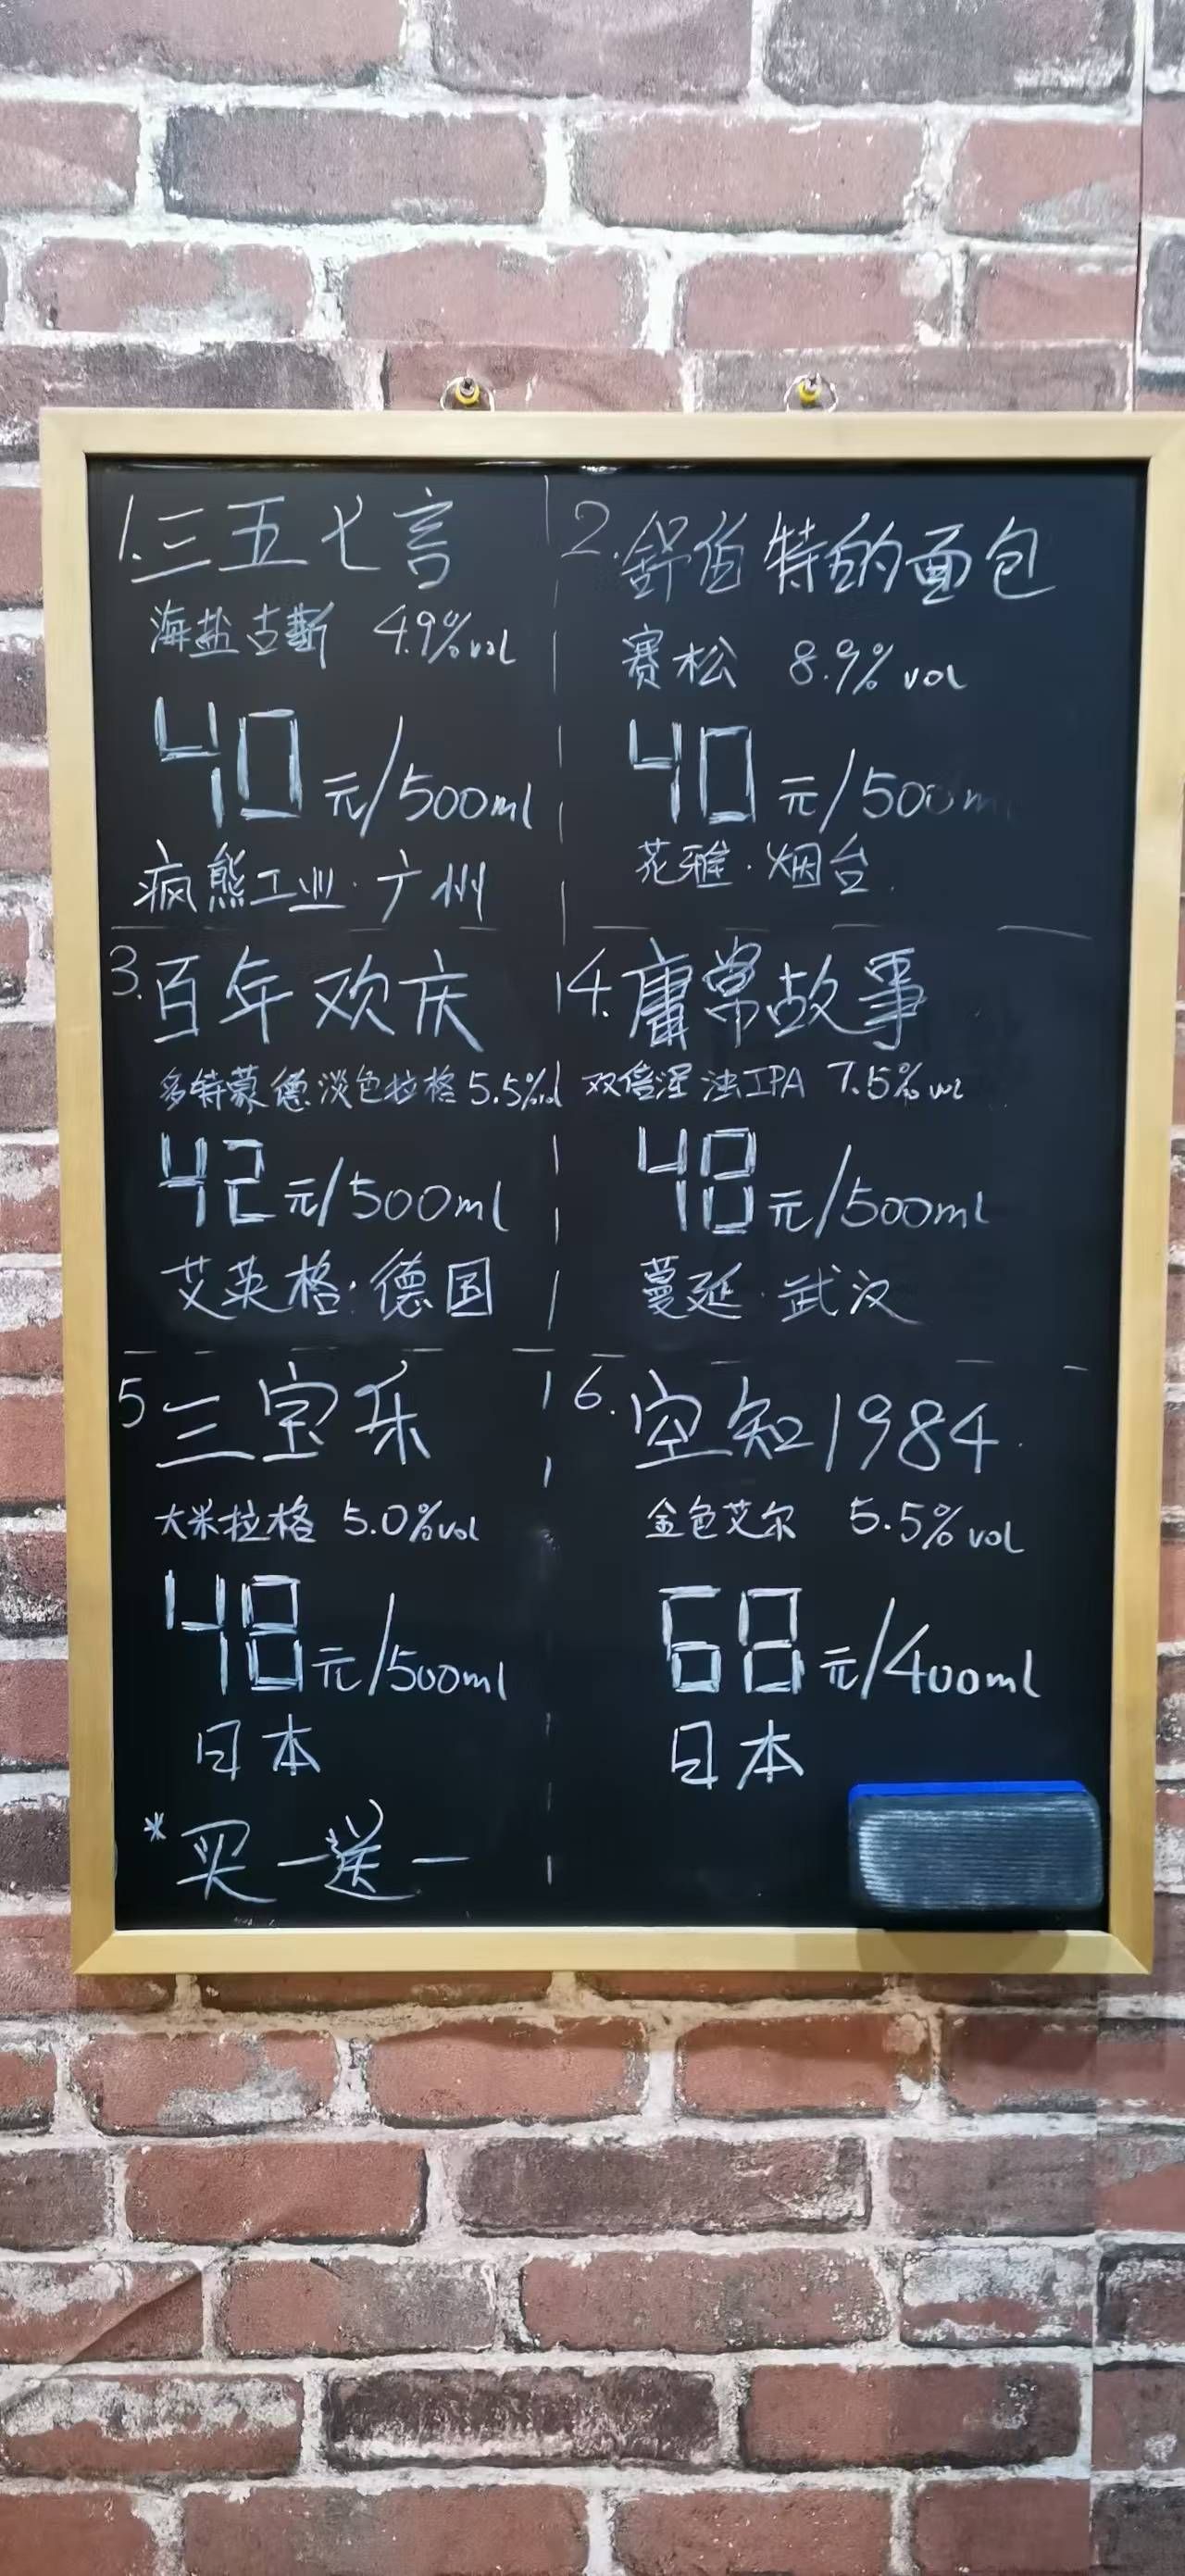 1.三五七言
海盐古斯 4.9%vol
40元/500ml
疯熊工业·广州
2.舒伯特的面包
赛松 8.9% vol
40元/500m
花雅·烟台
3.百年欢庆
多特蒙德淡色拉格5.5%vol
42元/500ml
艾英格·德国
4.庸常故事
双倍浑浊IPA 7.5%vol
48元/500ml
蔓延·武汉
5三宝乐
大米拉格 5.0%vol
48元/500ml
日本
*买一送一
6.空知1984
金色艾尔 5.5%vol
68元/400ml
日本